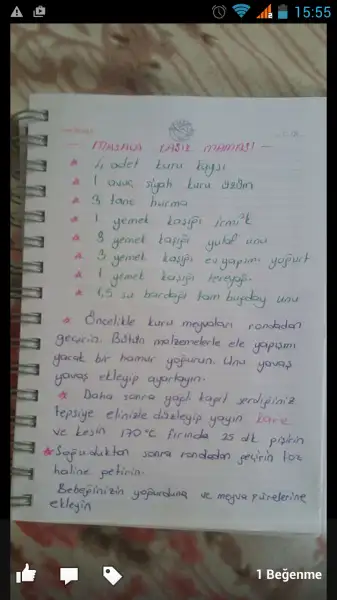 15:55
- MASAVA KAŞIK MAMASI -
* 4 adet kuru kayısı
* 1 avuç siyah kuru üzüm
* 3 tane hurma
* 1 yemek kaşığı irmik
* 3 yemek kaşığı yulaf unu
* 3 yemek kaşığı ev yapımı yoğurt
* 1 yemek kaşığı tereyağı
* 1,5 su bardağı tam buğday unu
* Öncelikle kuru meyvaları rondodan
geçirin. Bütün malzemelerle ele yapışmı
yacak bir hamur yoğurun. Unu yavaş
yavaş ekleyip ayarlayın.
* Daha sonra yağlı kağıt serdiğiniz
tepsiye elinizle düzleyip yayın kare
ve kesin 170°C fırında 25 dk pişirin
* Soğuduktan sonra rondodan geçirin toz
haline getirin.
Bebeğinizin yoğurduna ve meyva pürelerine
ekleyin
1 Beğenme